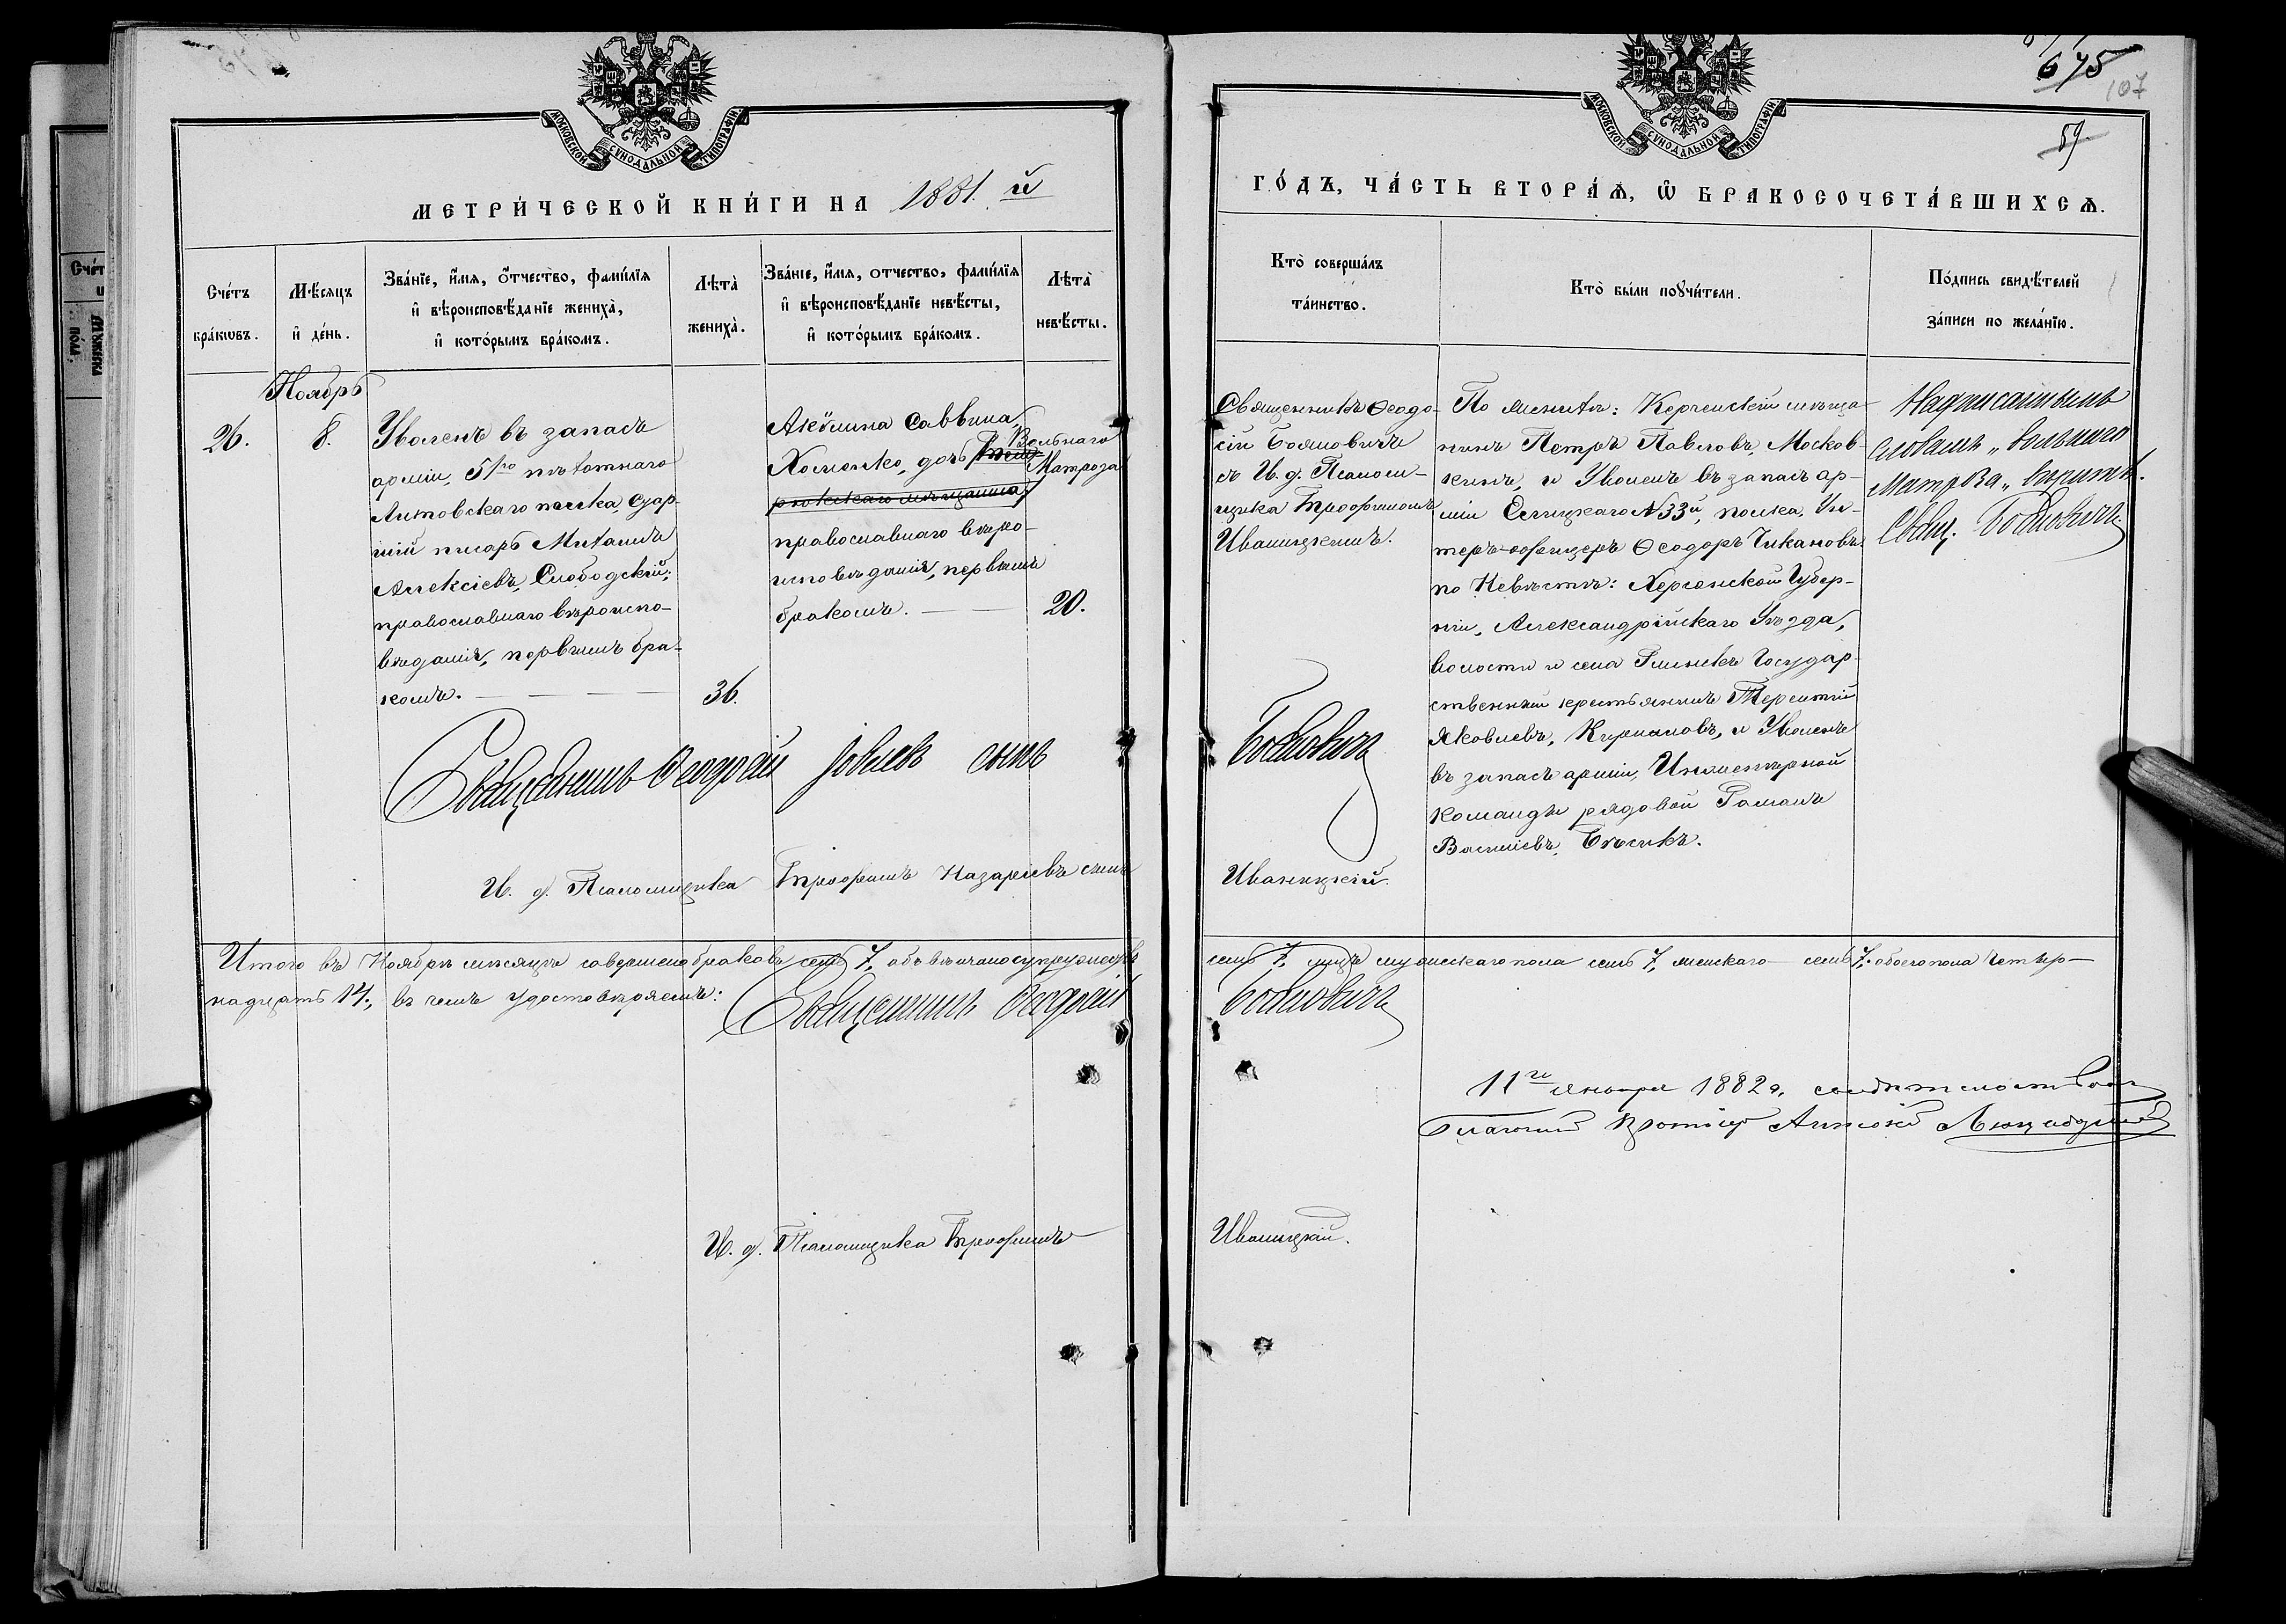 МОСКОВСКОЙ СѴНОДАЛЬНОЙ ТИПОГРАФІИ
МЕТРИ́ЧЕСКОЙ КНИ́ГИ НА 1881.й
Сче́тъ бра́кѡвъ.
Мѣ́сяцъ и де́нь.
Зва́нїе, и́мя, о́тчество, фами́лїя
и вѣроисповѣ́данїе жениха̀,
и кото́рымъ бра́комъ.
Лѣта̀ жениха̀.
Зва́нїе, и́мя, отчество, фами́лїя
и вѣроисповѣ́данїе невѣ́сты,
и кото́рымъ бра́комъ.
Лѣта̀ невѣ́сты.
Ноябрь
26.
8.
Уволенъ въ запасъ
арміи, 51го пѣхотнаго
Литовскаго полка, Стар-
шій писарь Михаилъ
Алексіевъ, Слободскій;
православнаго вѣроиспо-
вѣданія, первымъ бра-
комъ.
36.
Акѵлина Саввина,
Хоменко, дочь Вольнаго
Матроза
православнаго вѣро-
исповѣданія, первымъ
бракомъ.
20.
Священникъ Ѳеодосій Іовлевъ сынъ
И. д. Псаломщика Трофимъ Назаріевъ сынъ
Итого въ Ноябрѣ мѣсяцѣ совершено браковъ семь 7, объвѣнчано супружествъ
надцать 14., въ чемъ удостовѣряемъ:
Священникъ Ѳеодосій
И. д. Псаломщика Трофимъ
675
107
89
МОСКОВСКОЙ СѴНОДАЛЬНОЙ ТИПОГРАФІИ
ГО́ДЪ, ЧА́СТЬ ВТОРА́Ѧ, Ѡ БРАКОСОЧЕТА́ВШИХСѦ.
Кто̀ соверша́лъ
та́инство.
Кто̀ бы́ли порꙋчи́тели.
По́дпись свидѣ́телей
за́писи по жела́нїю.
Священникъ Ѳеодо-
сій Бояновичъ
съ И. д. Псалом-
щика Трофимомъ
Иваницкимъ.
По женихѣ: Керченскій мѣща-
нинъ Петръ Павловъ, Москов-
кинъ, и Уволенъ въ запасъ ар-
міи Елецкаго N33й, полка, Ун-
теръ-офицеръ Ѳеодоръ Чикановъ.
по Невѣстѣ: Херсонской Губер-
ніи, Александрійскаго Уѣзда,
волости и села Глинскъ Государ-
ственный крестьянинъ Терентій
Яковлевъ, Кирилловъ, и Уволенъ
въ запасъ арміи, Инженерной
команды рядовой Романъ
Василіевъ,
Надписанымъ
словамъ „вольнаго
Матроза„ вѣрить.
Свящ. Бояновичъ
Бояновичъ
Иваницкій.
семь 7, лицъ мужескаго пола семь 7, женскаго семь 7, обоего пола четыр-
Бояновичъ
11го января 1882 г. свидѣтельствовалъ
Иваницкій.